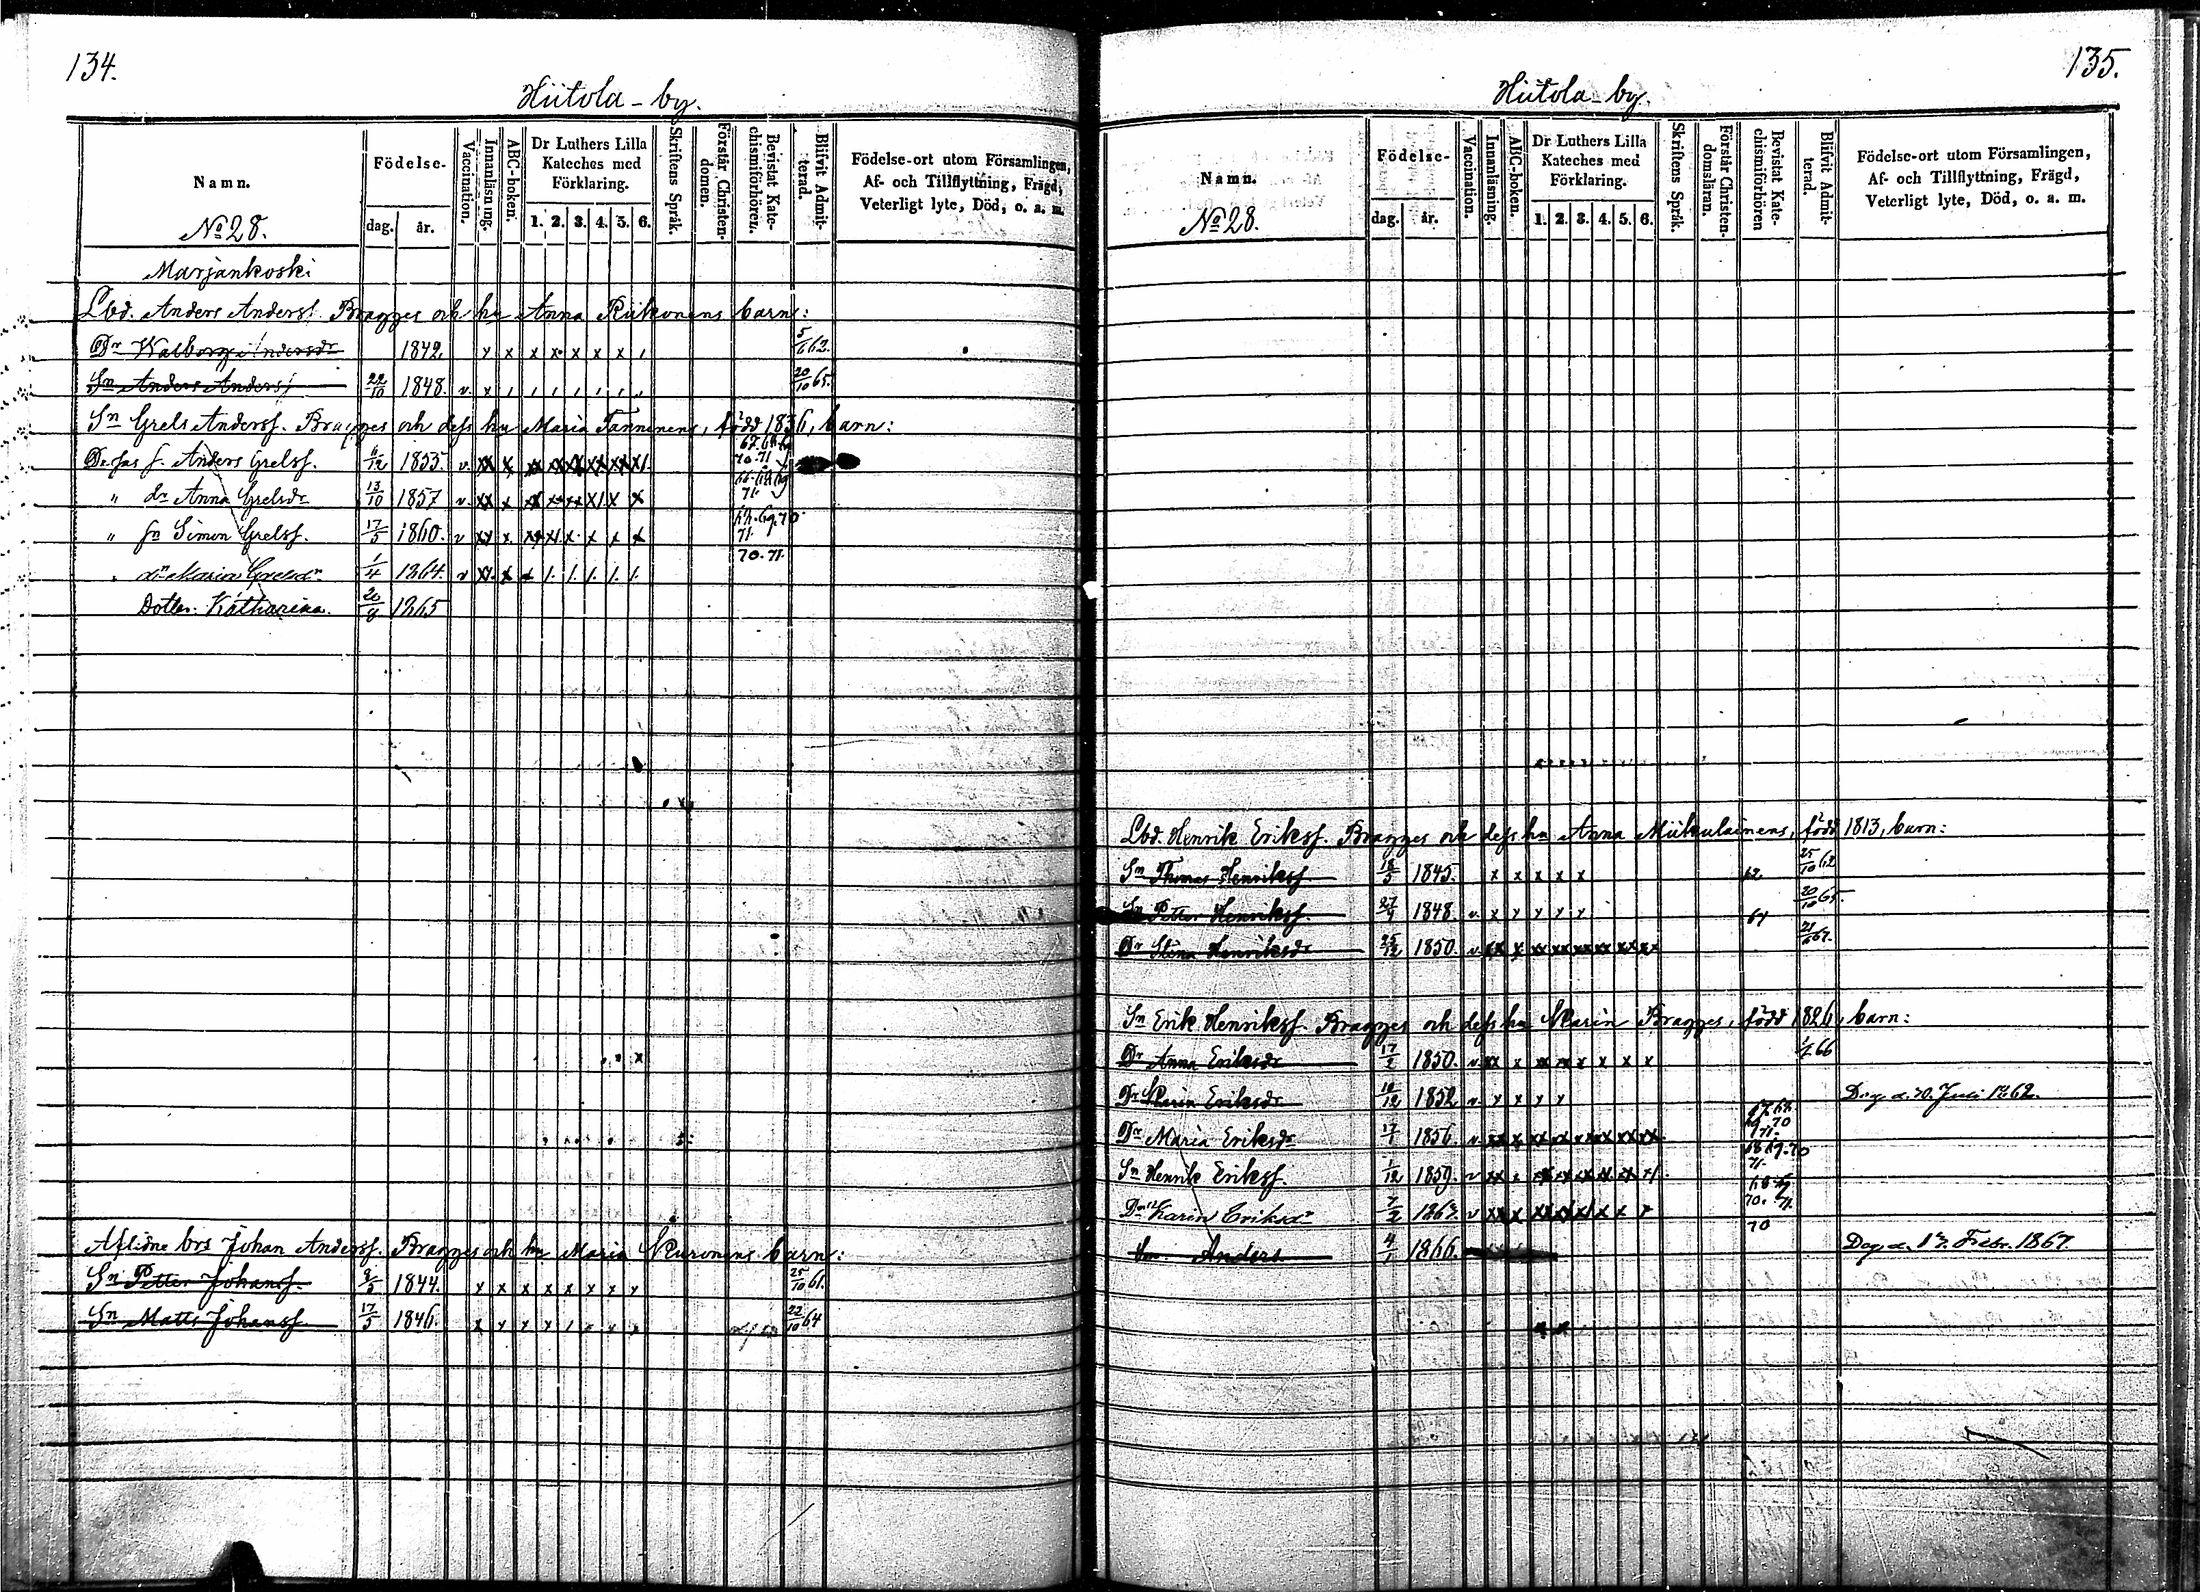 134.
Hiitola-by.
Namn.
Födelse-
dag.
år.
Vaccination.
Innanläsning.
ABC-boken.
Dr Luthers Lilla Kateches med Förklaring.
1. 2. 3. 4. 5. 6.
Skriftens Språk.
Förstår Christendomen.
Bevistat Katechismiförhören.
Blifvit Admitterad.
Födelse-ort utom Församlingen,
Af- och Tillflyttning, Frägd,
Veterligt lyte, Död, o. a. m.
No 28.
Marjankoski
Lbd. Anders Anderss. Bragges och hu Anna Riikonens barn:
Dr Walborg Andersdr 1842. x x x x x x x 5/6 62.
Sn Anders Anderss 22/10 1848. v. x 20/10 65.
Sn Grels Anderss. Bragges och dess hu Maria Tanninens, född 1836, barn:
Deras s. Anders Grelss. 6/12 1855. v. 70.71
" dr Anna Grelsdr 13/10 1857 v. 71.
" sn Simon Grelss. 17/5 1860. v 69.70 71.
" dr Maria Grelsdr 1/4 1864. v 70.71.
Dotter: Katharina. 20/9 1865
Aflidne brs Johan Anderss. Bragges och hu Maria Muronens barn:
Sn Petter Johanss. 9/5 1844. x x x x x x x x 25/10 61.
Sn Matts Johanss. 17/5 1846. 22/10 64
135.
Hiitola-by.
Namn.
Födelse-
dag.
år.
Vaccination.
Innanläsning.
ABC-boken.
Dr Luthers Lilla Kateches med Förklaring.
1. 2. 3. 4. 5. 6.
Skriftens Språk.
Förstår Christendomsläran.
Bevistat Katechismiförhören
Blifvit Admitterad.
Födelse-ort utom Församlingen,
Af- och Tillflyttning, Frägd,
Veterligt lyte, Död, o. a. m.
No 28.
Lbd. Henrik Erikss. Bragges och dess hu Anna Miikulainens, född 1813, barn:
Sn Thomas Henrikss. 18/5 1845. x x x x x 62 25/10 62
Sn Petter Henrikss. 27/4 1848. v. x x x x x 64 20/10 65.
Dr Stina Henriksdr 25/12 1850. v. 21/6 67.
Sn Erik Henrikss. Bragges och dess hu Maria Bragges, född 1826, barn:
Dr Anna Eriksdr 17/2 1850. v. 66
Dr Maria Eriksdr 10/12 1852 v. x x x x Dog d. 30. Juli 1862.
Dr Maria Eriksdr 17/1 1856. v. 67.68. 69.70 71.
Sn Henrik Erikss. 1/12 1859. v 68.69.70 71.
Dr Karin Eriksdr 7/2 1863. v 70. 71.
Anders 4/1 1866. 70 Dog d. 13. Febr. 1867.